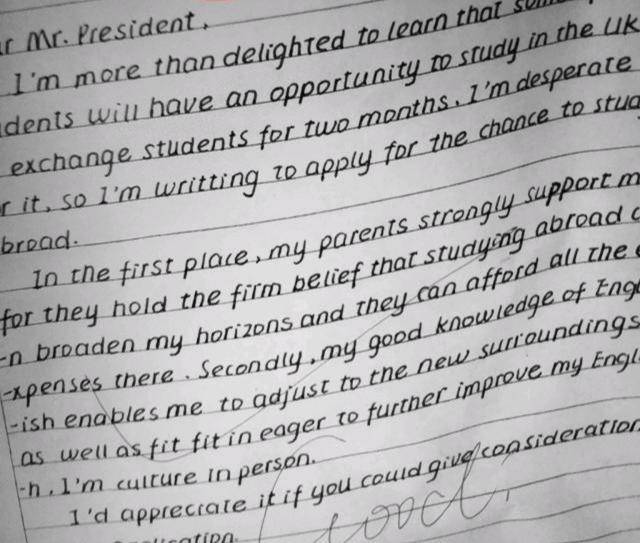 Mr. President,
I'm more than delighted to learn that
dents will have an opportunity to study in the UK
exchange students for two months. I'm desperate
r it, so I'm writting to apply for the chance to stud
broad.
In the first place, my parents strongly support m
for they hold the firm belief that studying abroad c
-n broaden my horizons and they can afford all the e
-xpenses there. Secondly, my good knowledge of Engl
-ish enables me to adjust to the new surroundings
as well as fit fit in eager to further improve my Engl
-h. I'm culture in person.
I'd appreciate it if you could give consideration
Good!